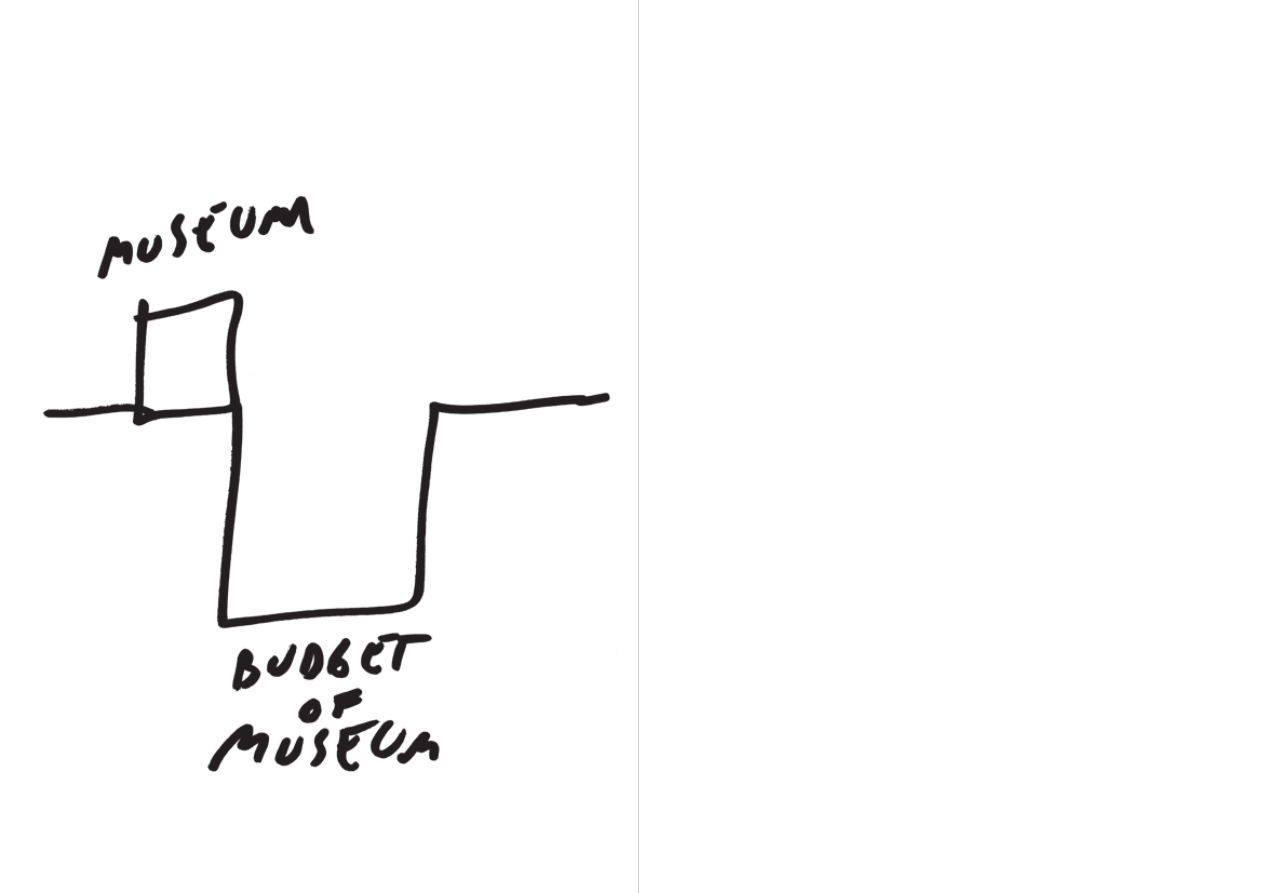 MUSEUM
BUDGET
OF
MUSEUM